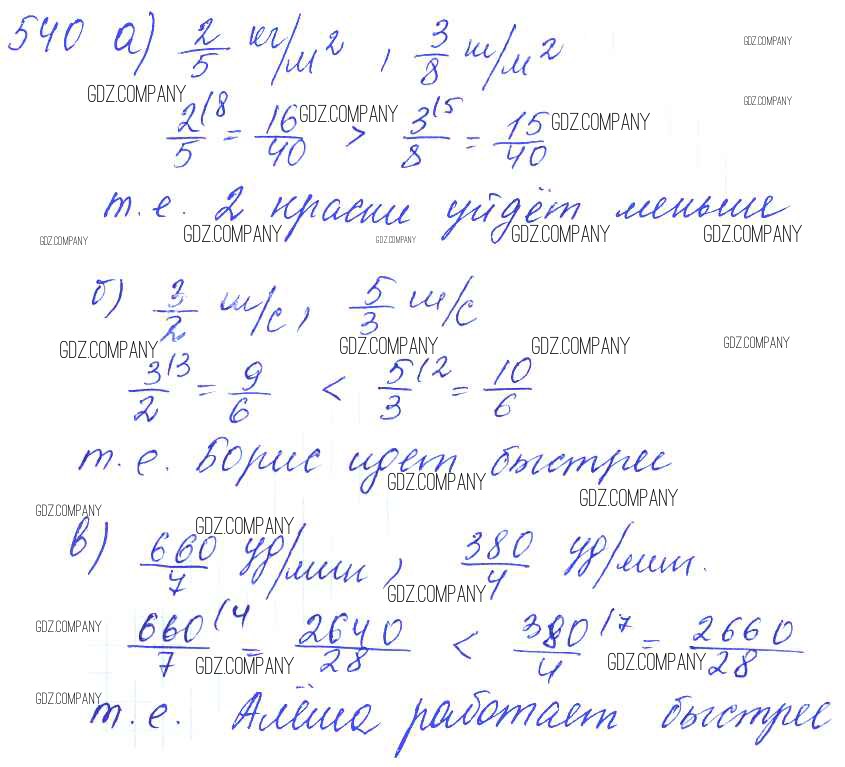 540 а) 2/5 кг/м² , 3/8 ш/м²
GDZ.COMPANY
GDZ.COMPANY
GDZ.COMPANY GDZ.COMPANY GDZ.COMPANY
2/5 (8 = 16/40 > 3/8 (5 = 15/40
т.е. 2 краски уйдёт меньше
GDZ.COMPANY GDZ.COMPANY GDZ.COMPANY GDZ.COMPANY GDZ.COMPANY
б) 3/2 ш/с, 5/3 ш/с
GDZ.COMPANY GDZ.COMPANY GDZ.COMPANY GDZ.COMPANY
3/2 (3 = 9/6 < 5/3 (2 = 10/6
т.е. Борис идет быстрее
GDZ.COMPANY GDZ.COMPANY
GDZ.COMPANY GDZ.COMPANY
в) 660/7 уд/мин, 380/4 уд/мин.
GDZ.COMPANY
GDZ.COMPANY
660/7 (4 = 2640/28 < 380/4 (7 = 2660/28
GDZ.COMPANY GDZ.COMPANY
GDZ.COMPANY
т.е. Алёша работает быстрее